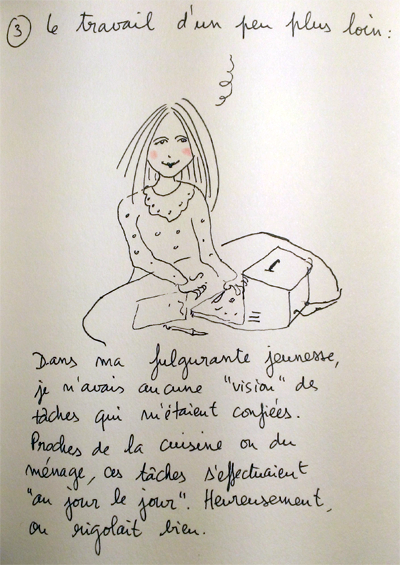 3 le travail d'un peu plus loin :
Dans ma fulgurante jeunesse,
je n'avais aucune "vision" des
tâches qui m'étaient confiées.
Proches de la cuisine ou du
ménage, ces tâches s'effectuaient
"au jour le jour". Heureusement,
on rigolait bien.